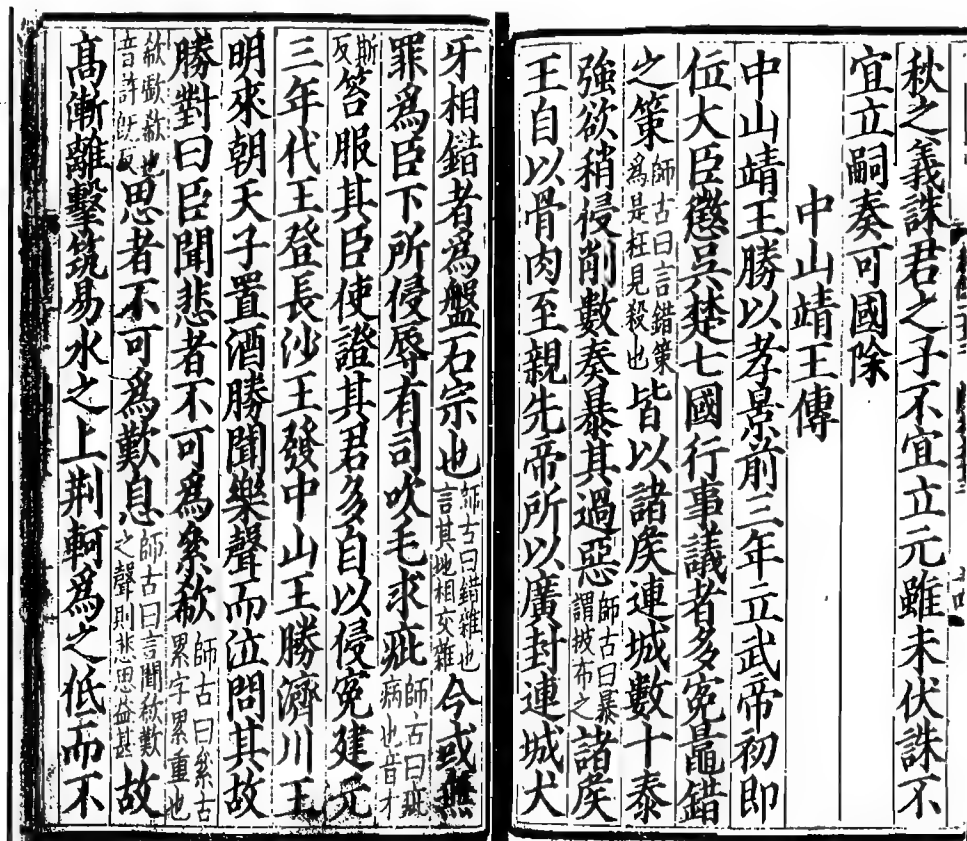 秋之義誅君之子不宜立元雖未伏誅不
宜立嗣奏可國除
中山靖王傳
中山靖王勝以孝景前三年立武帝初即
位大臣懲吳楚七國行事議者多冤鼂錯
之策師古曰言錯策為是枉見殺也皆以諸侯連城數十泰
強欲稍侵削數奏暴其過惡師古曰暴謂披布之諸侯
王自以骨肉至親先帝所以廣封連城犬
牙相錯者為盤石宗也師古曰錯雜也言其地相交雜今或無
罪為臣下所侵辱有司吹毛求疵師古曰疵病也音才
斯反笞服其臣使證其君多自以侵冤建元
三年代王登長沙王發中山王勝濟川王
明來朝天子置酒勝聞樂聲而泣問其故
勝對曰臣聞悲者不可為絫欷師古曰絫古累字累重也
欷歔欷也音許旣反思者不可為歎息師古曰言聞欷歎之聲則悲思益甚故
高漸離擊筑易水之上荆軻為之低而不